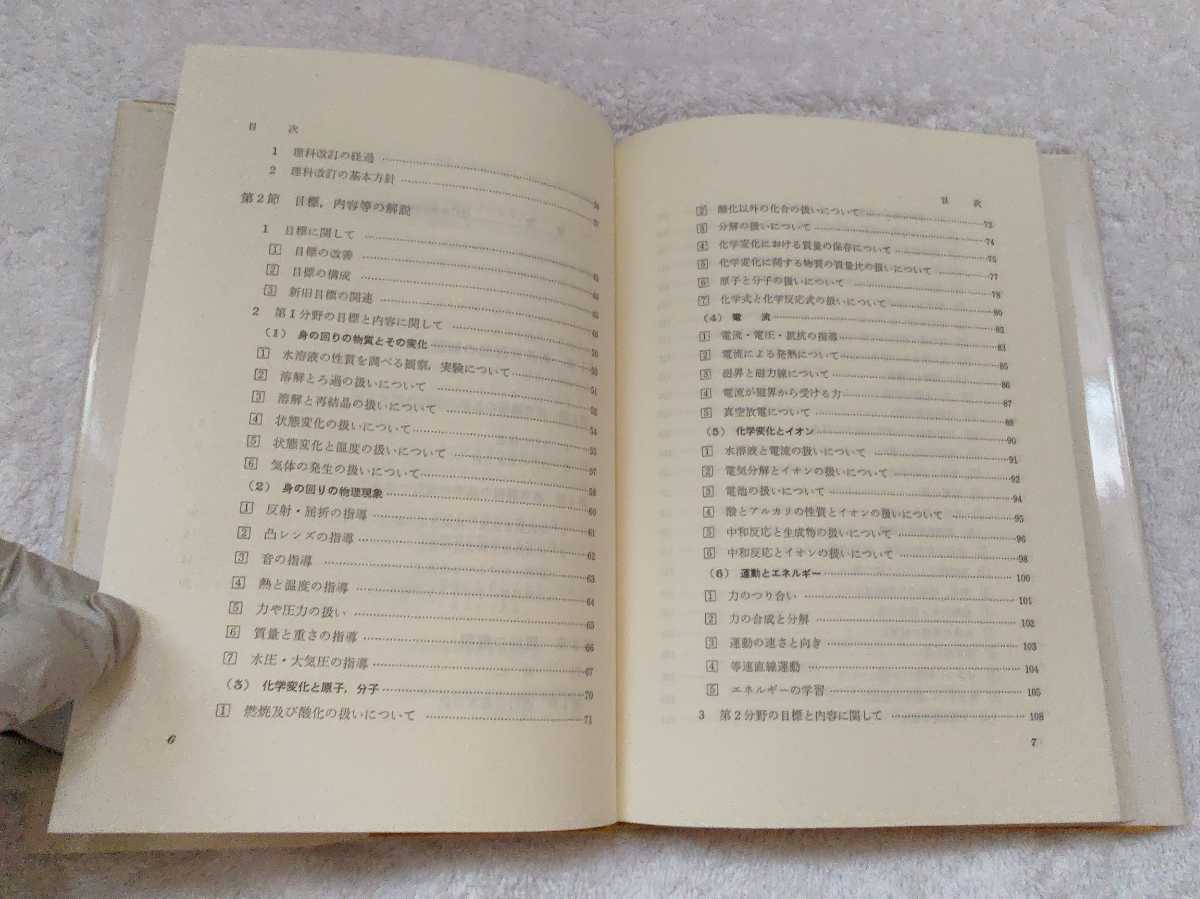 目 次
1 理科改訂の経過
2 理科改訂の基本方針
第2節 目標，内容等の解説
1 目標に関して
1 目標の改善
2 目標の構成
3 新旧目標の関連
2 第1分野の目標と内容に関して
(1) 身の回りの物質とその変化
1 水溶液の性質を調べる観察，実験について
2 溶解とろ過の扱いについて
3 溶解と再結晶の扱いについて
4 状態変化の扱いについて
5 状態変化と温度の扱いについて
6 気体の発生の扱いについて
(2) 身の回りの物理現象
1 反射・屈折の指導 61
2 凸レンズの指導 62
3 音の指導 63
4 熱と温度の指導 64
5 力や圧力の扱い 65
6 質量と重さの指導 66
7 水圧・大気圧の指導 67
(3) 化学変化と原子，分子 70
1 燃焼及び酸化の扱いについて 71
6
目 次
2 酸化以外の化合の扱いについて 73
3 分解の扱いについて 74
4 化学変化における質量の保存について
5 化学変化に関する物質の質量比の扱いについて 77
6 原子と分子の扱いについて 78
7 化学式と化学反応式の扱いについて 80
(4) 電 流 82
1 電流・電圧・抵抗の指導 83
2 電流による発熱について 85
3 磁界と磁力線について 86
4 電流が磁界から受ける力 87
5 真空放電について
(5) 化学変化とイオン 90
1 水溶液と電流の扱いについて 91
2 電気分解とイオンの扱いについて 92
3 電池の扱いについて 94
4 酸とアルカリの性質とイオンの扱いについて 95
5 中和反応と生成物の扱いについて 96
6 中和反応とイオンの扱いについて 98
(6) 運動とエネルギー 100
1 力のつり合い 101
2 力の合成と分解 102
3 運動の速さと向き 103
4 等速直線運動 104
5 エネルギーの学習 105
3 第2分野の目標と内容に関して 108
7